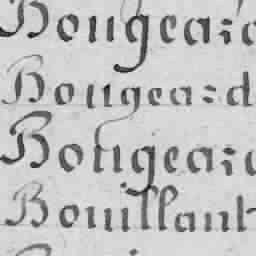 Bougeard
Bougeard
Bougeard
Bouillant